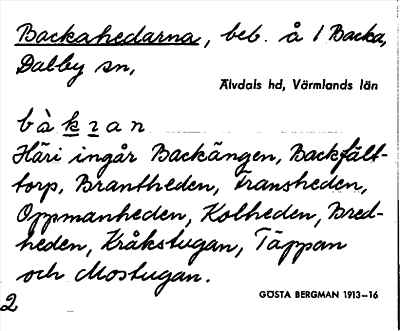 Backahedarna, beb. å 1 Backa,
Dalby sn,
Älvdals hd, Värmlands län
bàkɿan
Häri ingår Backängen, Backfält-
torp, Brantheden, Fransheden,
Oppmanheden, Kolheden, Bred-
heden, Kråkstugan, Täppan
och Mostugan.
GÖSTA BERGMAN 1913-16
2